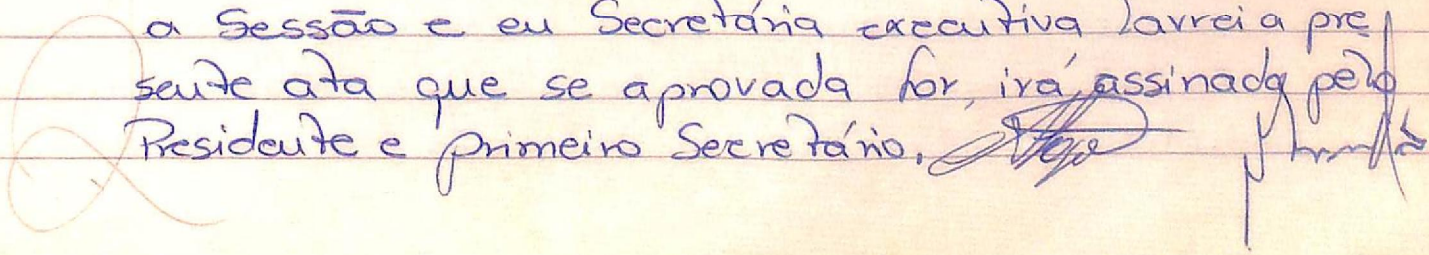 a Sessão e eu Secretária executiva lavrei a pre
sente ata que se aprovada for, irá assinada pelo
Presidente e primeiro Secretário.